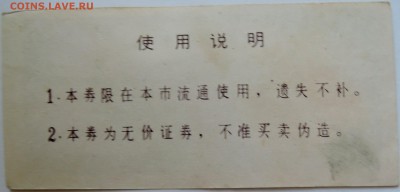 COINS.LAVE.RU
使用说明
1.本券限在本市流通使用，遗失不补。
2.本券为无价证券，不准买卖伪造。